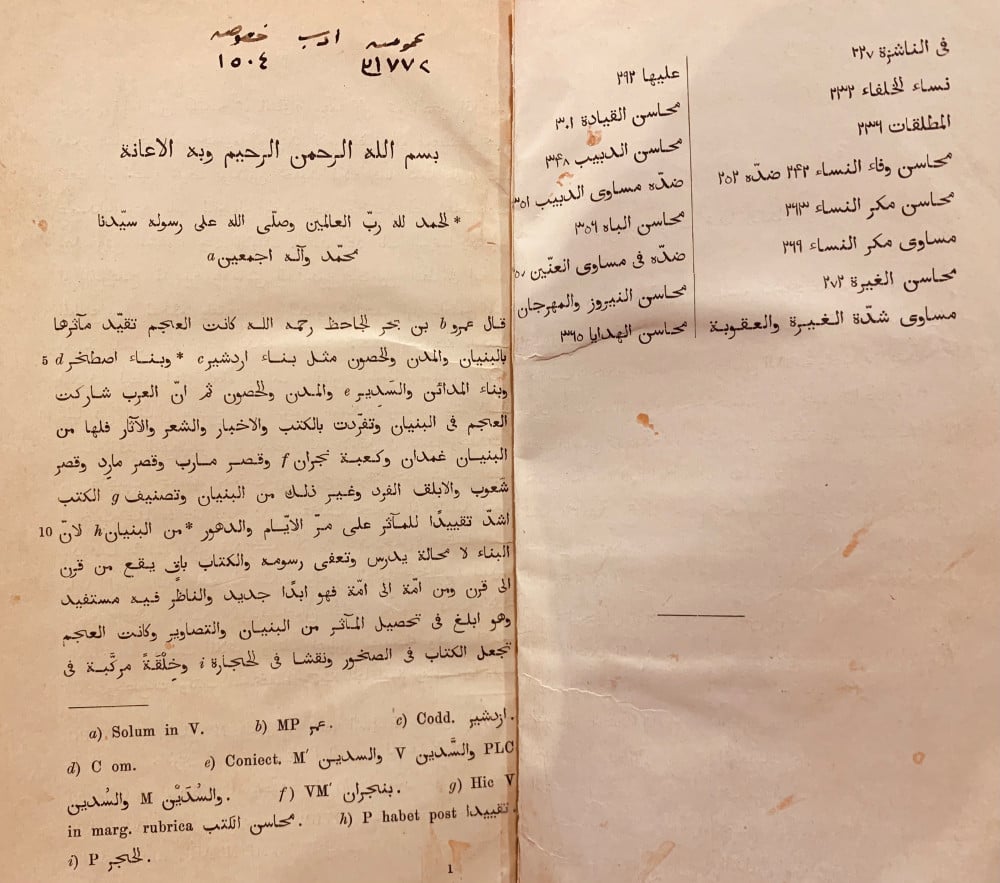 فى الناشزة ٢٢٧
نساء الخلفاء ٢٣٢
المطلقات ٢٣٦
محاسن وفاء النساء ٢٤٢ ضدّه ٢٥٢
محاسن مكر النساء ٢٦٣
مساوى مكر النساء ٢٦٩
محاسن الغيرة ٢٧٢
مساوى شدّة الغيرة والعقوبة
عليها ٢٩٢
محاسن القيادة ٣٠١
محاسن الدبيب ٣٤٨
ضدّه مساوى الدبيب ٣٥١
محاسن الباه ٣٥٦
ضدّه فى مساوى العنّين
محاسن النيروز والمهرجان
محاسن الهدايا ٣٦٥
عمومیه ادب خصوصیه
٣١٧٧٢ ١٥٠٤
بسم الله الرحمن الرحيم وبه الاعانة
* الحمد لله ربّ العالمين وصلّى الله على رسوله سيّدنا
محمّد وآله اجمعين a
قال عمرو b بن بحر الجاحظ رحمه الله كانت العجم تقيّد مآثرها
بالبنيان والمدن والحصون مثل بناء اردشير c * وبناء اصطخر d 5
وبناء المدائن والسَدير e والمدن والحصون ثم انّ العرب شاركت
العجم فى البنيان وتفرّدت بالكتب والاخبار والشعر والآثار فلها من
البنيان غمدان وكعبة نجران f وقصر مارب وقصر مارِد وقصر
شَعوب والابلق الفرد وغير ذلك من البنيان وتصنيف g الكتب
اشدّ تقييدًا للمآثر على مرّ الايّام والدهور * من البنيان h لانّ 10
البناء لا محالة يدرس وتعفى رسومه والكتاب باقٍ يقع من قرن
الى قرن ومن امّة الى امّة فهو ابدًا جديد والناظر فيه مستفيد
وهو ابلغ فى تحصيل المآثر من البنيان والتصاوير وكانت العجم
تجعل الكتاب فى الصخور ونقشا فى الحجارة i وخِلْقَةً مركّبة فى
a) Solum in V. b) MP عمر. c) Codd. ازدشير.
d) C om. e) Coniect. M′ والسدين V والسَّدين PLC
والسُدين M والسُدَيْن. f) VM′ بنجران. g) Hic V
in marg. rubrica محاسن الكتب. h) P habet post تقييدا.
i) P الحجر.
1